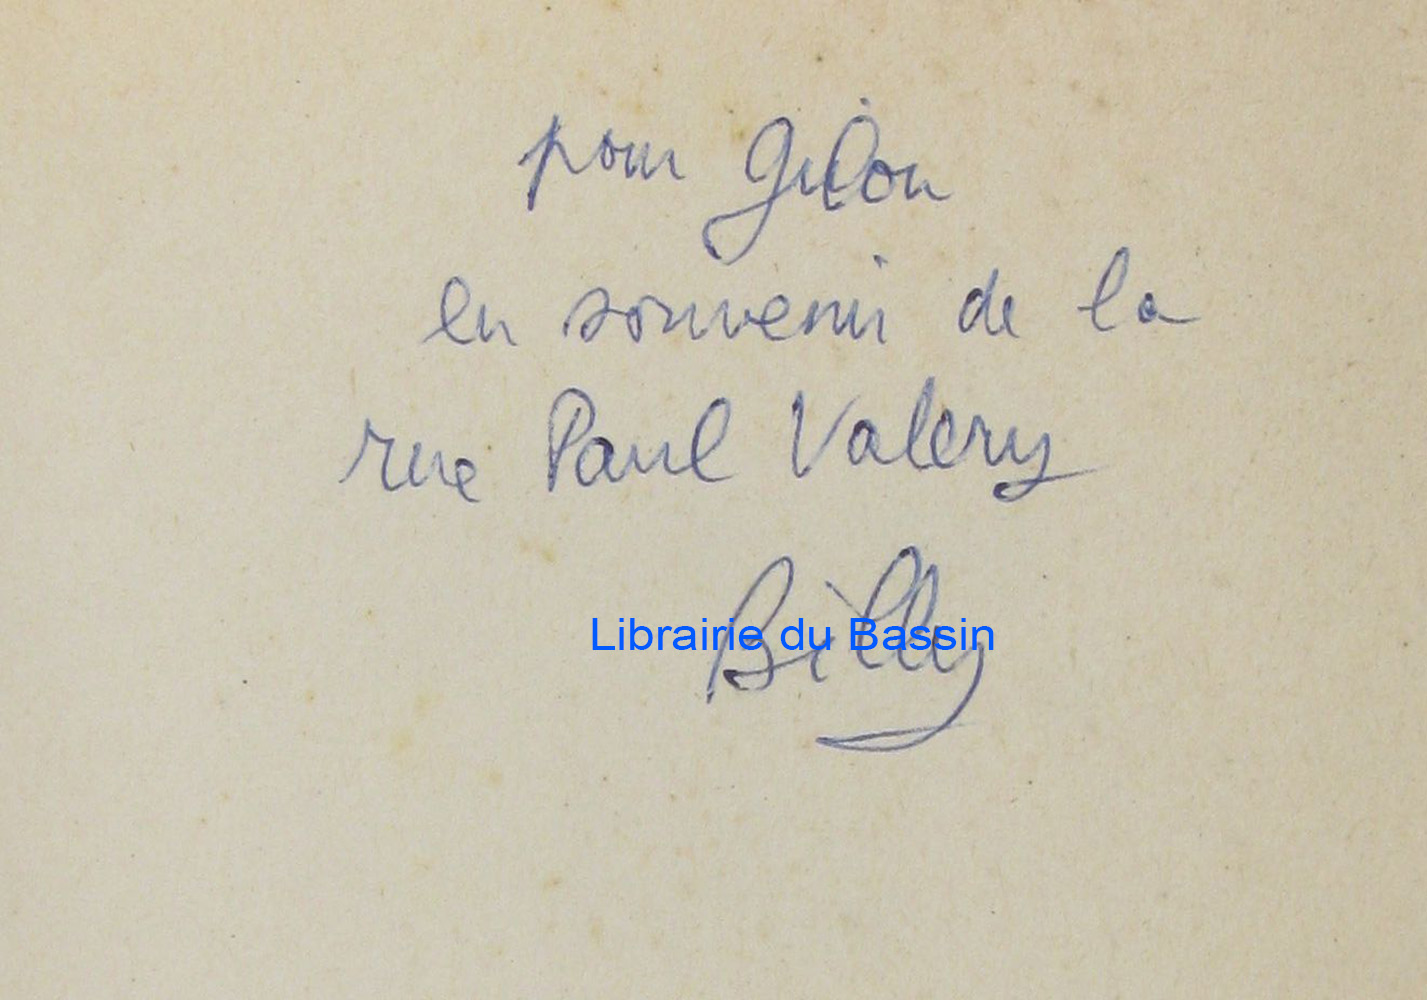 pour Gilou
en souvenir de la
rue Paul Valery
Billy
Librairie du Bassin